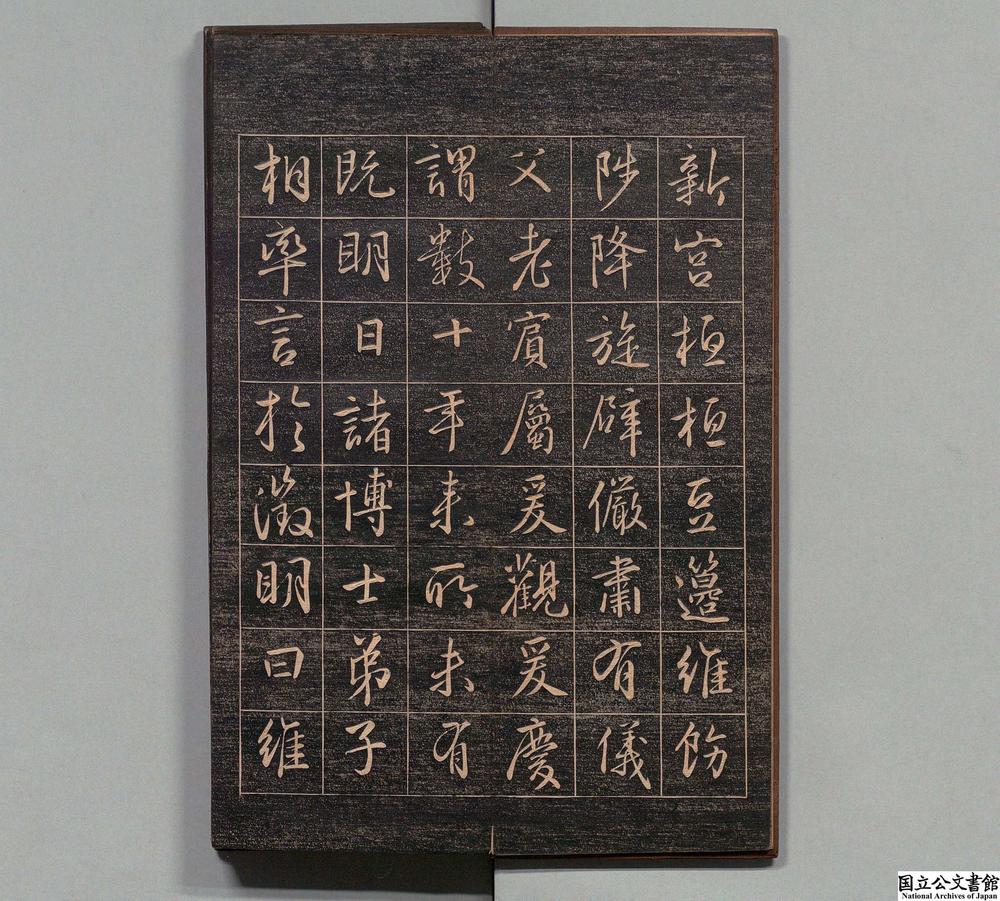 新宮桓桓豆籩維飭
陟降旋辟儼肅有儀
父老賔屬爰觀爰慶
謂數十年来所未有
既明日諸博士弟子
相率言於徵明曰維
国立公文書館
National Archives of Japan